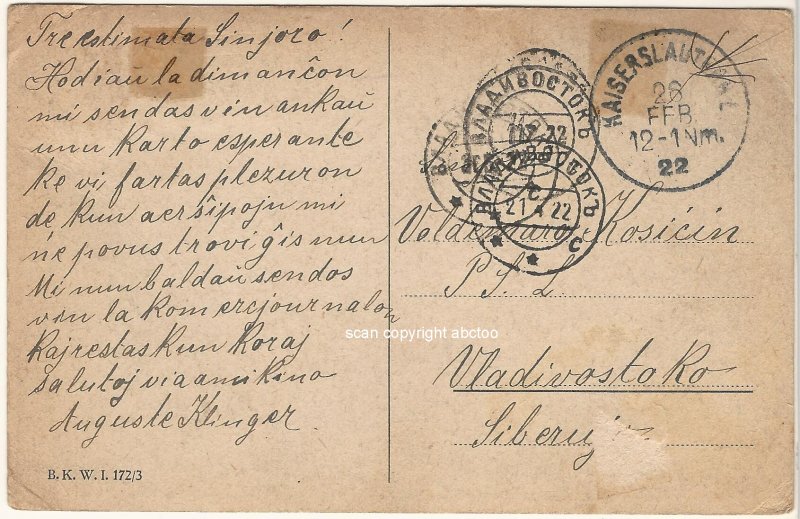 Treestimata Sinjoro!
Hodiaŭ la dimanĉon
mi sendas vin ankaŭ
unu karto esperante
ke vi fartas plezuron
de kun aerŝipoju mi
ne povus trovi ĝis nun
Mi nun baldaŭ sendos
vin la komercjournalon
kaj restas kun koraj
salutoj via amikino
Auguste Klinger.
B. K. W. I. 172/3
ВЛАДИВОСТОКЪ
22
ВЛАДИВОСТОКЪ
21 4 22
С
KAISERSLAUTERN
26
FEB.
12-1 Nm.
22
Voldemaro Kosicin
Vladivostoko
scan copyright abctoo